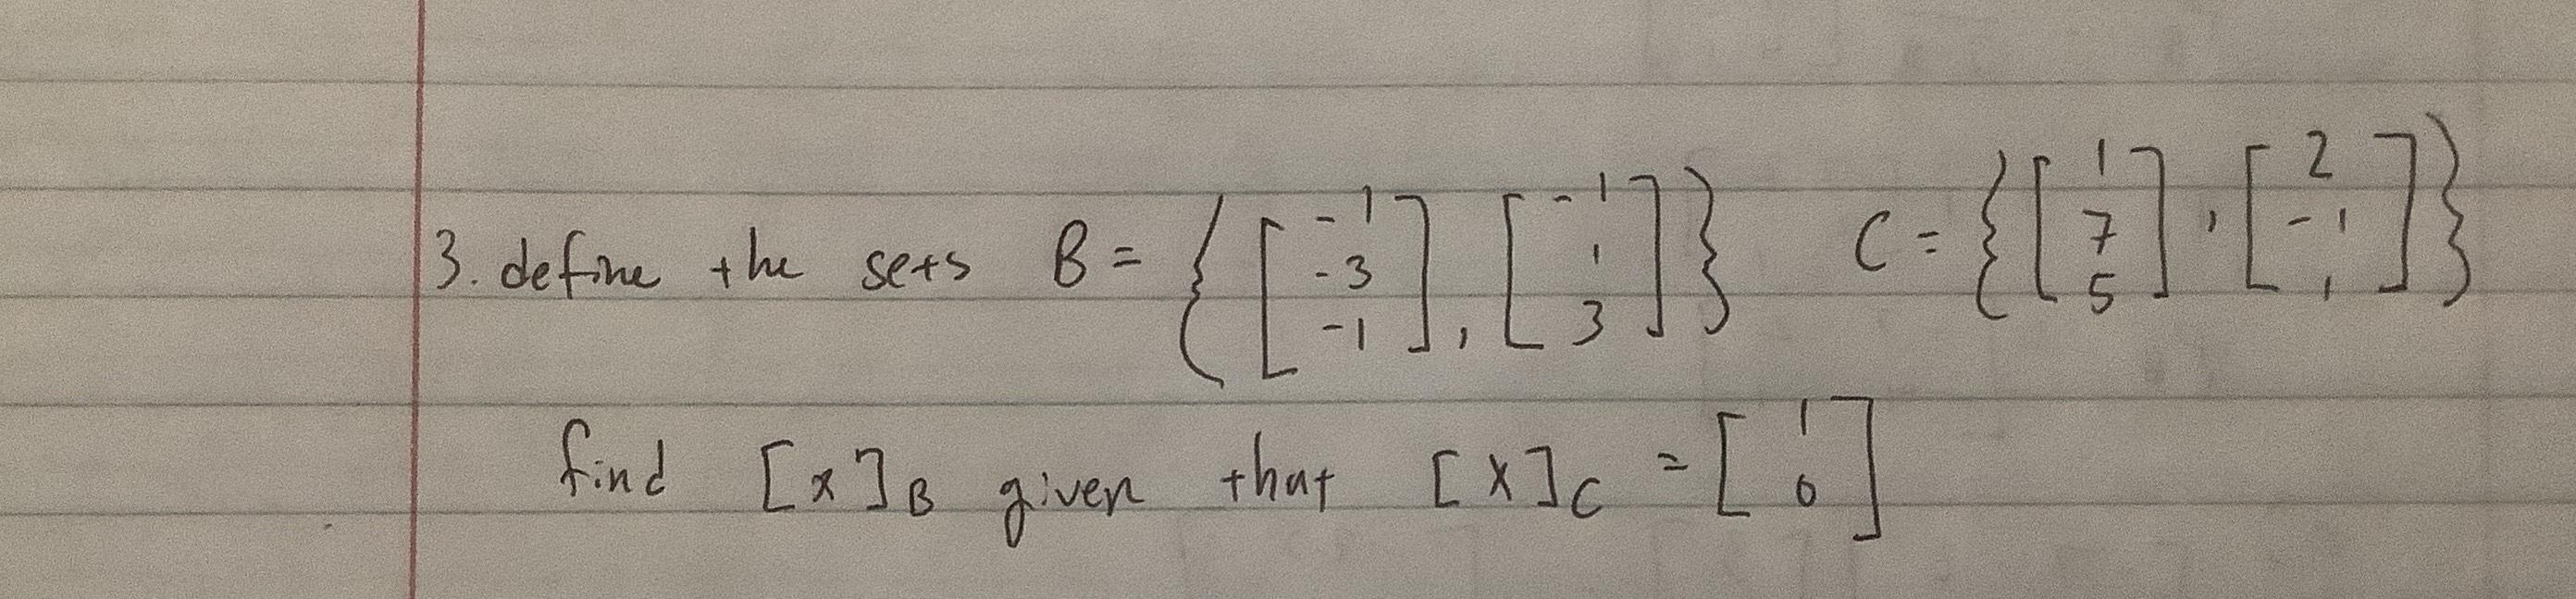 3. define the sets B = { [ -1 -3 -1 ], [ -1 1 3 ] } C = { [ 1 7 5 ], [ 2 -1 1 ] }
find [x]B given that [x]C = [ 1 0 ]